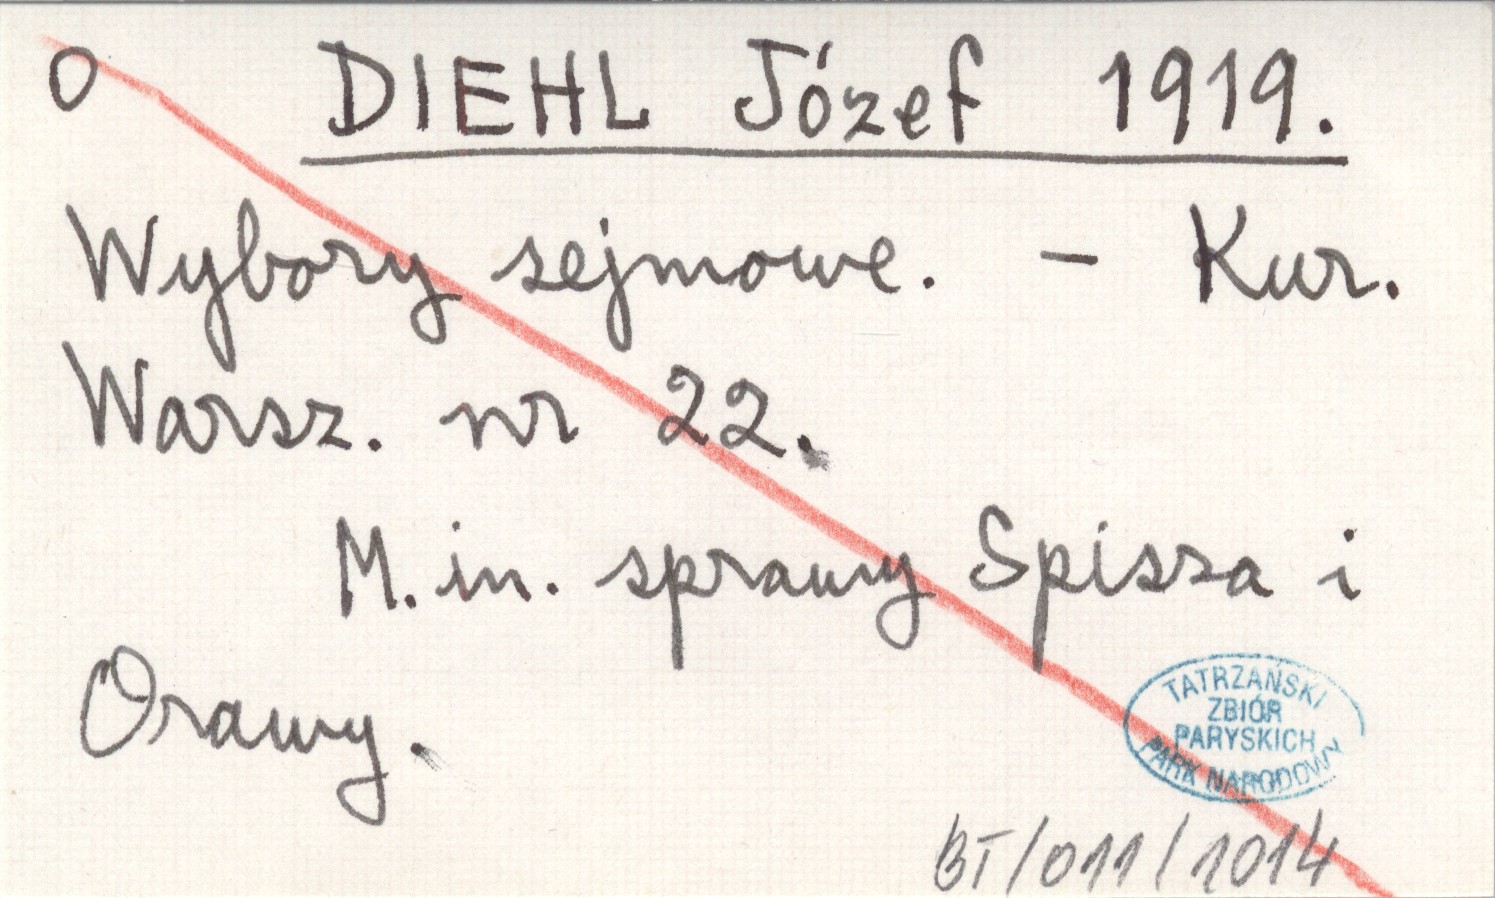 O DIEHL Józef 1919.
Wybory sejmowe. – Kur.
Warsz. nr 22.
M. in. sprawy Spisza i
Orawy.
TATRZAŃSKI
ZBIÓR
PARYSKICH
PARK NARODOWY
BT/011/1014